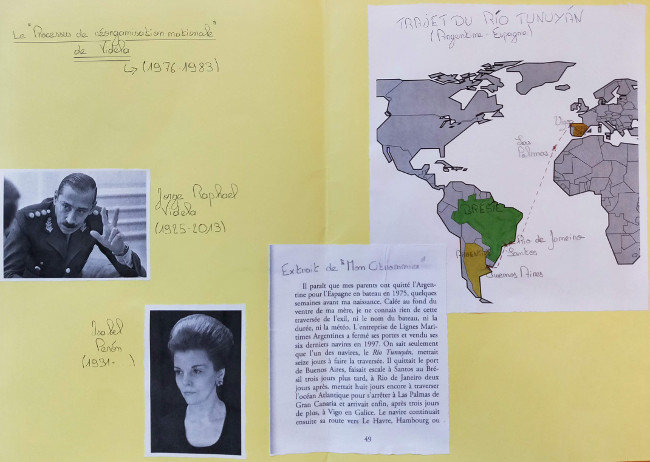 Le "Processus de réorganisation nationale"
de Videla
↳ (1976-1983)
Jorge Raphael
Videla
(1925-2013)
Isabel
Perón
(1931-
TRAJET DU RÍO TUNUYÁN
(Argentine - Espagne)
Vigo
Las
Palmas
BRÉSIL
Rio de Janeiro
Santos
Buenos Aires
Extrait de "Mon Citronnier"
Il paraît que mes parents ont quitté l'Argen-
tine pour l'Espagne en bateau en 1975, quelques
semaines avant ma naissance. Calée au fond du
ventre de ma mère, je ne connais rien de cette
traversée de l'exil, ni le nom du bateau, ni la
durée, ni la météo. L'entreprise de Lignes Mari-
times Argentines a fermé ses portes et vendu ses
six derniers navires en 1997. On sait seulement
que l'un des navires, le Río Tunuyán, mettait
seize jours à faire la traversée. Il quittait le port
de Buenos Aires, faisait escale à Santos au Bré-
sil trois jours plus tard, à Rio de Janeiro deux
jours après, mettait huit jours encore à traverser
l'océan Atlantique pour s'arrêter à Las Palmas de
Gran Canaria et arrivait enfin, après trois jours
de plus, à Vigo en Galice. Le navire continuait
ensuite sa route vers Le Havre, Hambourg ou